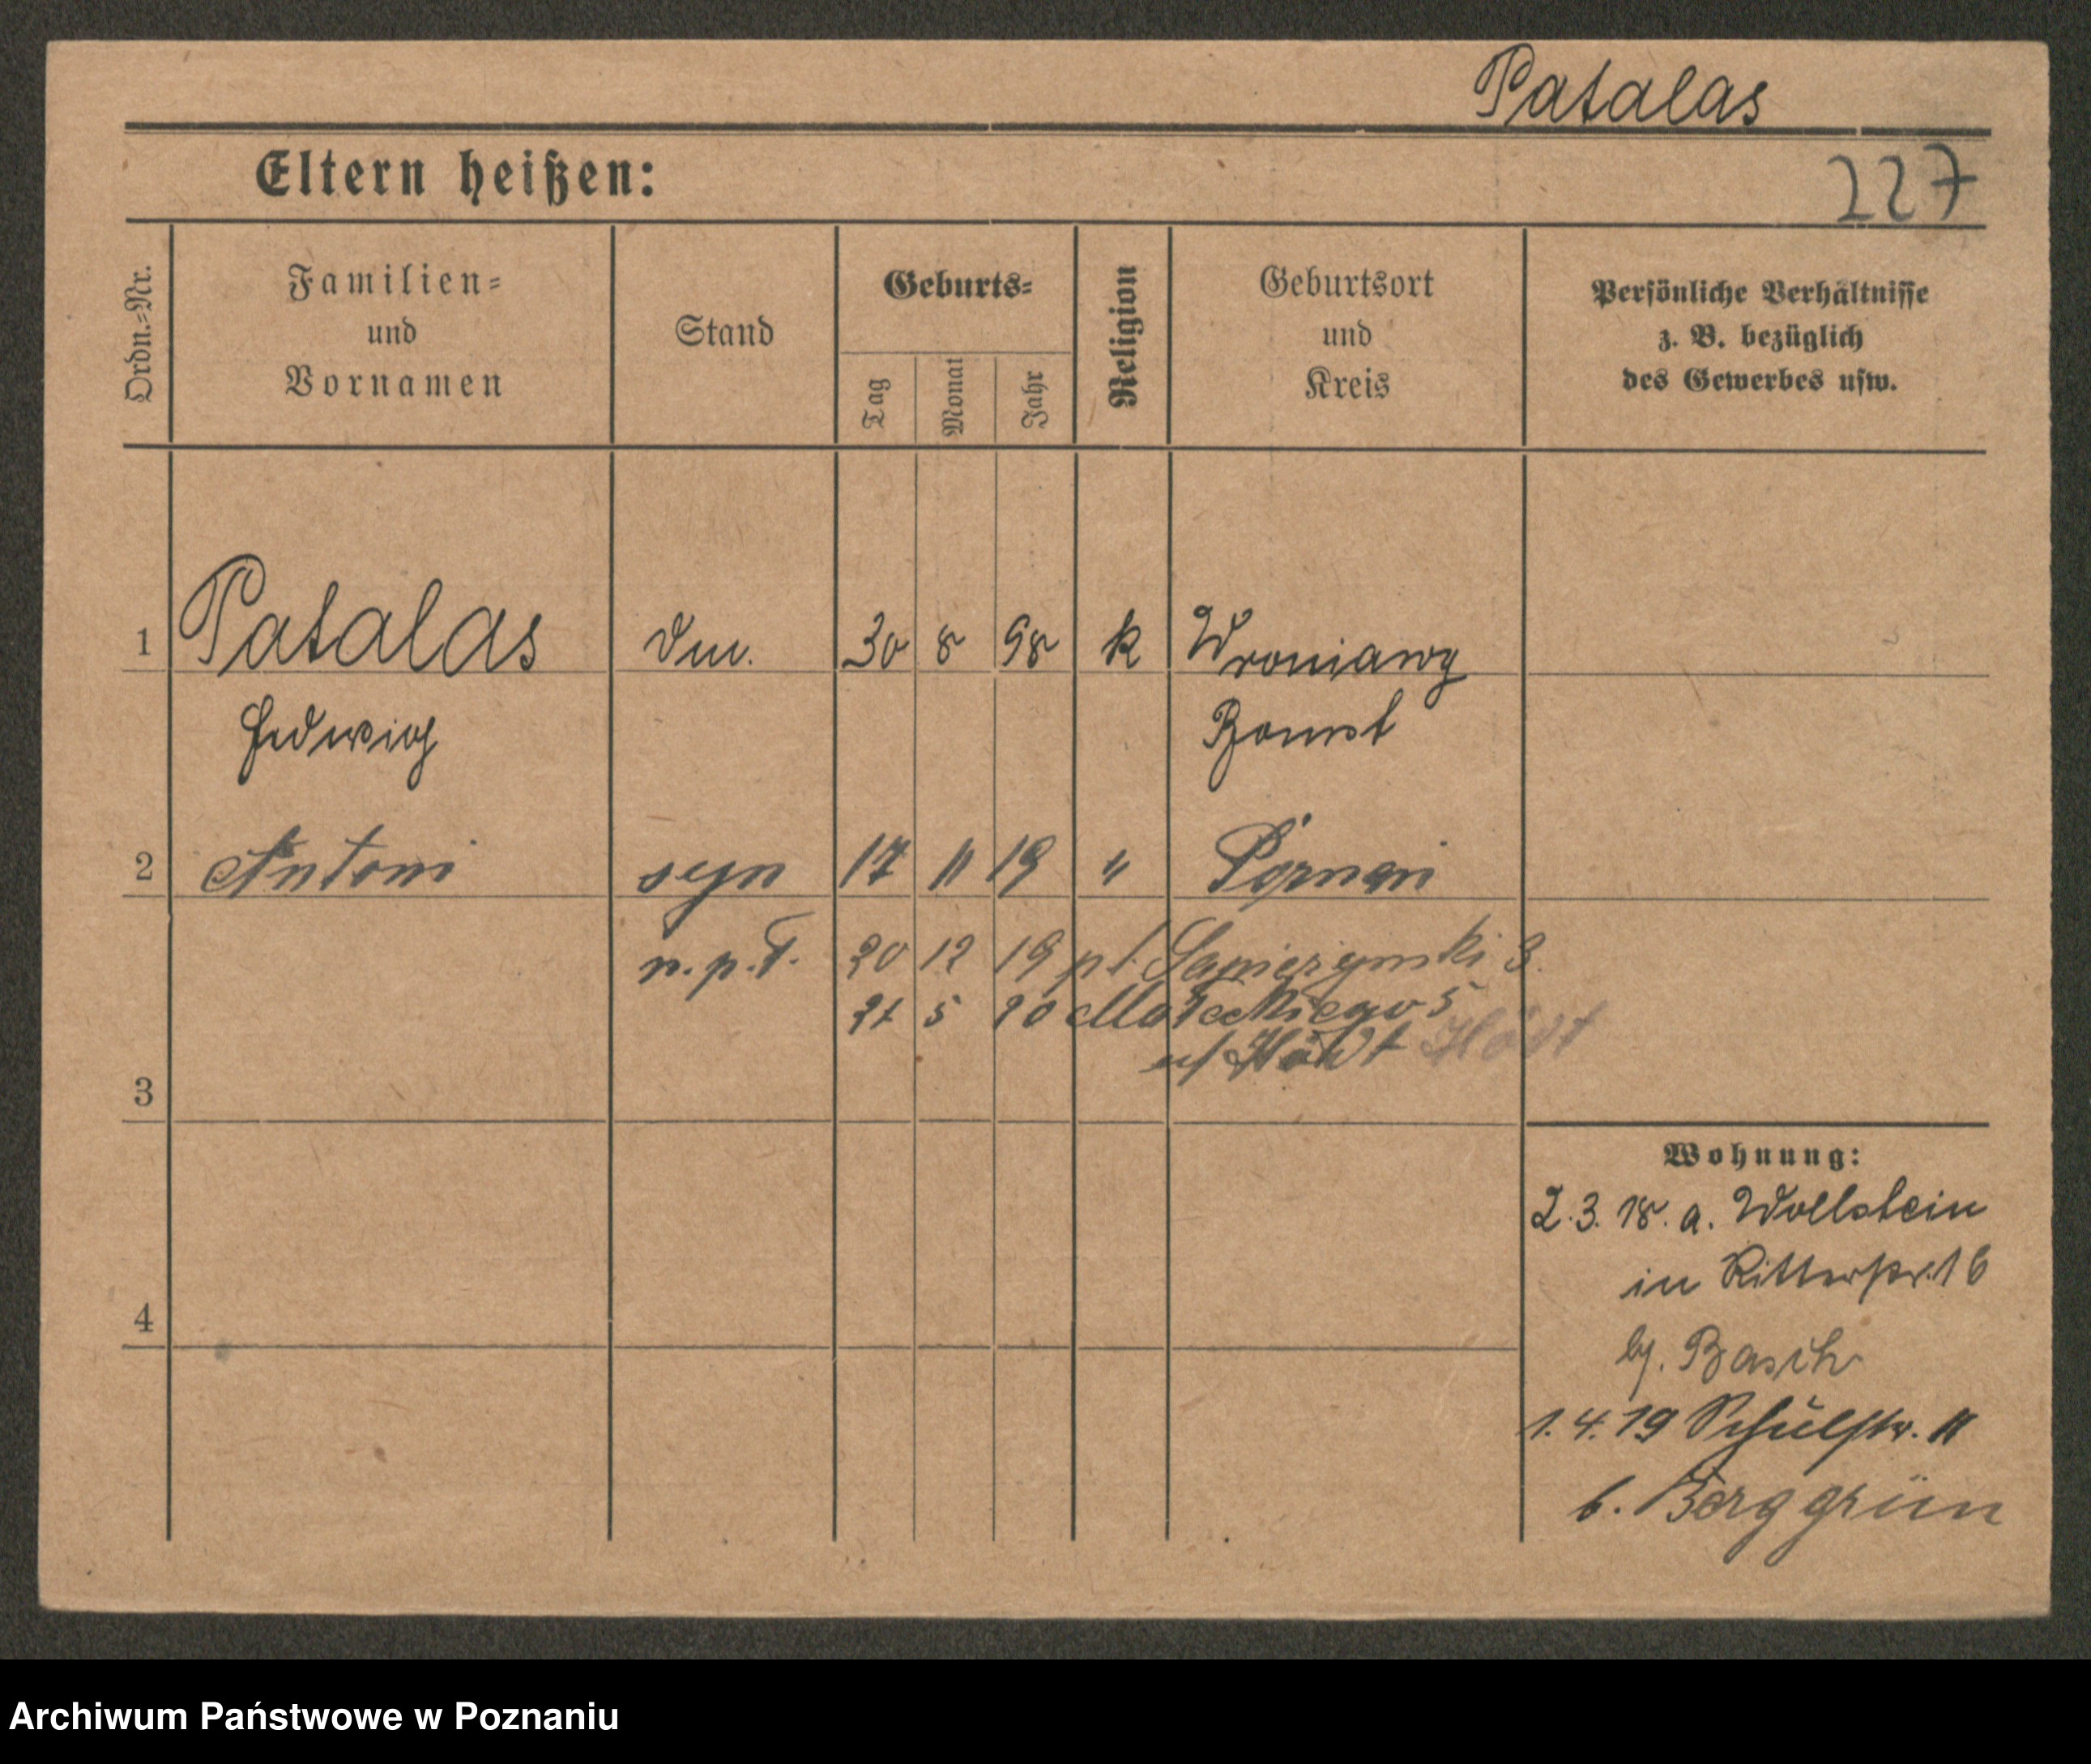 Patalas
Eltern heißen:
227
Ordn.-Nr.
Familien-
und
Vornamen
Stand
Geburts-
Tag
Monat
Jahr
Religion
Geburtsort
und
Kreis
Persönliche Verhältnisse
z. B. bezüglich
des Gewerbes usw.
1 Patalas 30 8 98 k Wroniawy
Hedwig Bomst
2 Antoni syn 17 11 19 " Poznań
n.p.T. 20 12 19 pl. Sapieżyński 3.
21 5 20 Małeckiego 5
Hödt
3
Wohnung:
2.3.18. a. Wollstein
in Ritterstr. 16
4
b/. Basch
1.4.19 Schulstr. 11
b. Berggrün
Archiwum Państwowe w Poznaniu